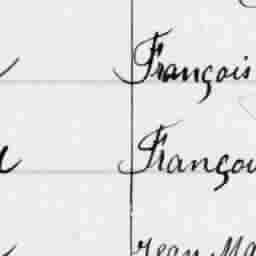 François
Françoi
Jean Ma